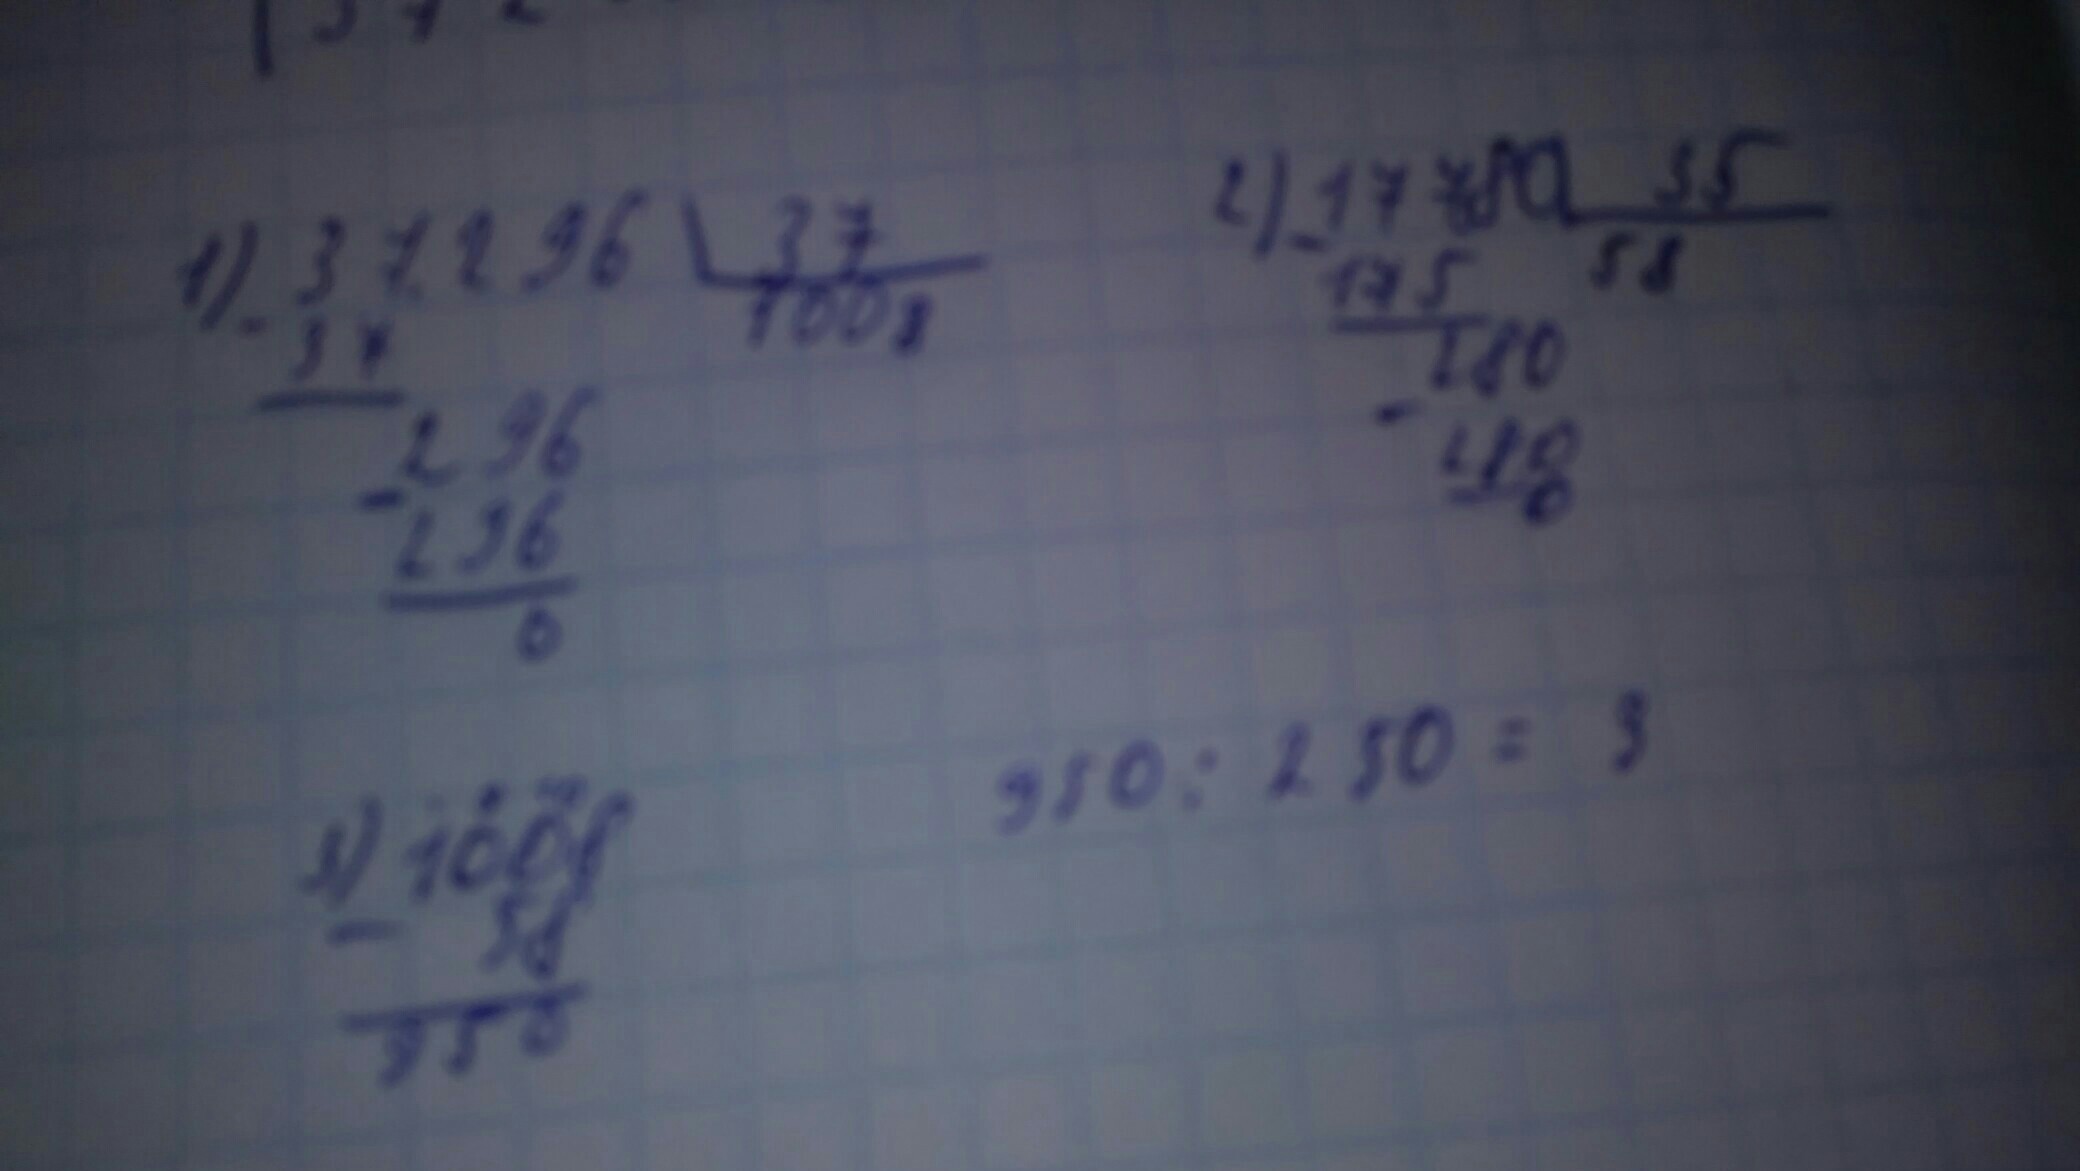 372
1) - 37296 37
37 1008
- 296
296
0
2) - 17780 35
175 58
- 280
280
0
3) 1008
- 58
950
950 : 250 = 3